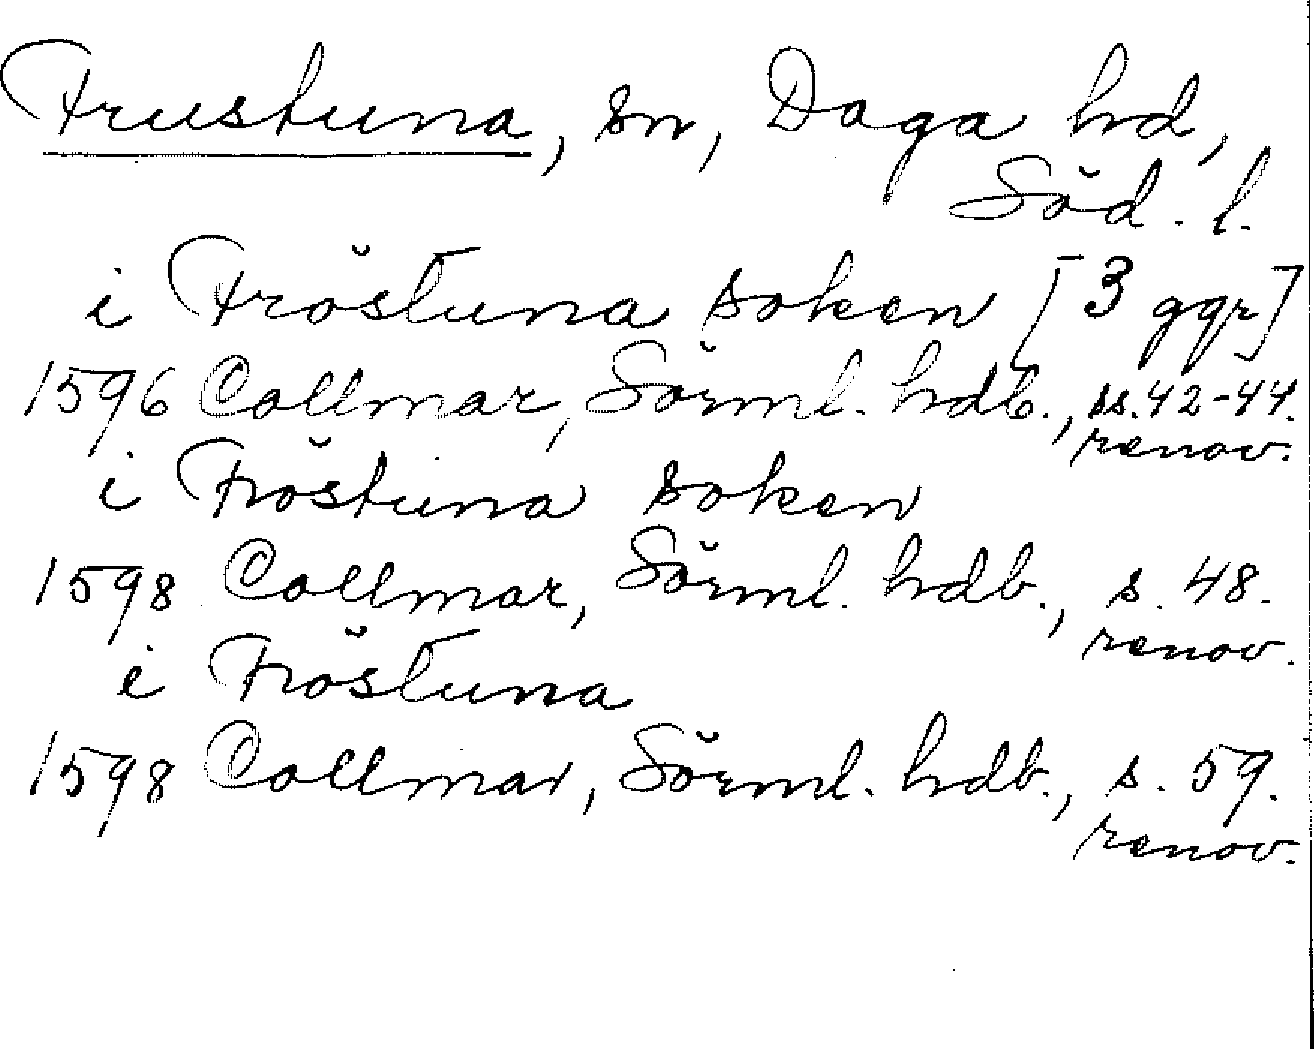 Frustuna, sn, Daga hd,
Söd. l.
i Fröstuna soken [3 ggr]
1596 Collmar, Sörml. hdb., ss. 42-44.
renov.
i Fröstuna soken
1598 Collmar, Sörml. hdb., s. 48.
renov.
i Fröstuna
1598 Collmar, Sörml. hdb., s. 59.
renov.